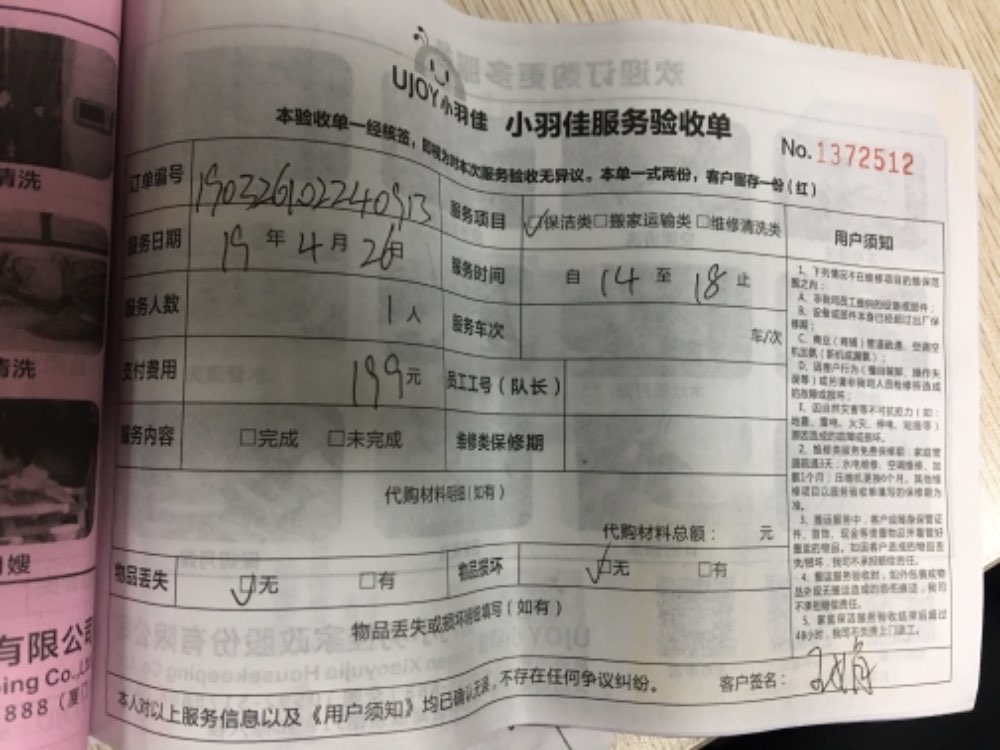 清洗
清洗
月嫂
有限公司
ing Co.,Lt
888（厦门
UJOY小羽佳 小羽佳服务验收单
No.1372512
本验收单一经核签，即视为对本次服务验收无异议。本单一式两份，客户留存一份（红）
订单编号 服务项目 ☑保洁类□搬家运输类□维修清洗类
服务日期 19 年 4 月 26日 服务时间 自 14 至 18 止
服务人数 1 人 服务车次 车/次
支付费用 199元 员工工号（队长）
服务内容 □完成 □未完成 维修类保修期
代购材料明细（如有）
代购材料总额： 元
物品丢失 ☑无 □有 物品损坏 ☑无 □有
物品丢失或损坏明细填写（如有）
本人对以上服务信息以及《用户须知》均已确认无误，不存在任何争议纠纷。 客户签名：
用户须知
1、下列情况不在维修项目的维保范
围之内：
A、非我司员工维保的设备或部件；
B、设备或部件本身已经超过出厂保
修期；
C、商业（商铺）管道疏通、空调空
机加氨（新机或漏氨）；
的故障或损坏；
E、因自然灾害等不可抗拒力（如：
地震、雷电、火灾、停电、短路等）
原因造成的故障或损坏。
2、维修类服务免费保修期：家庭管
道疏通3天；水电维修、空调维修、加
氨1个月；压缩机更换6个月。其他维
修项目以服务验收单填写的保修期为
准。
3、搬运服务中，客户应随身保管证
件、首饰、现金等贵重物品并看管好
失/损坏，我司不承担赔偿责任。
4、搬运服务验收时，如外包装或物
品外观无搬运造成的损伤痕迹，我司
不承担赔偿责任。
5、家庭保洁服务验收结束后超过
48小时，我司不免费上门返工。